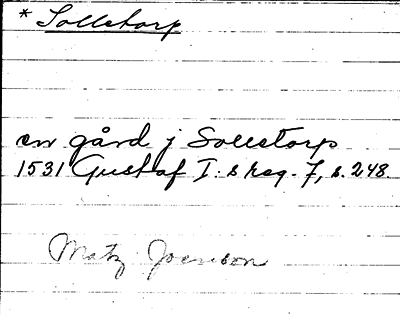 * Solletorp
en gård j Solletorp
1531 Gustaf I. s reg. 7, s. 248.
Matz Joenson